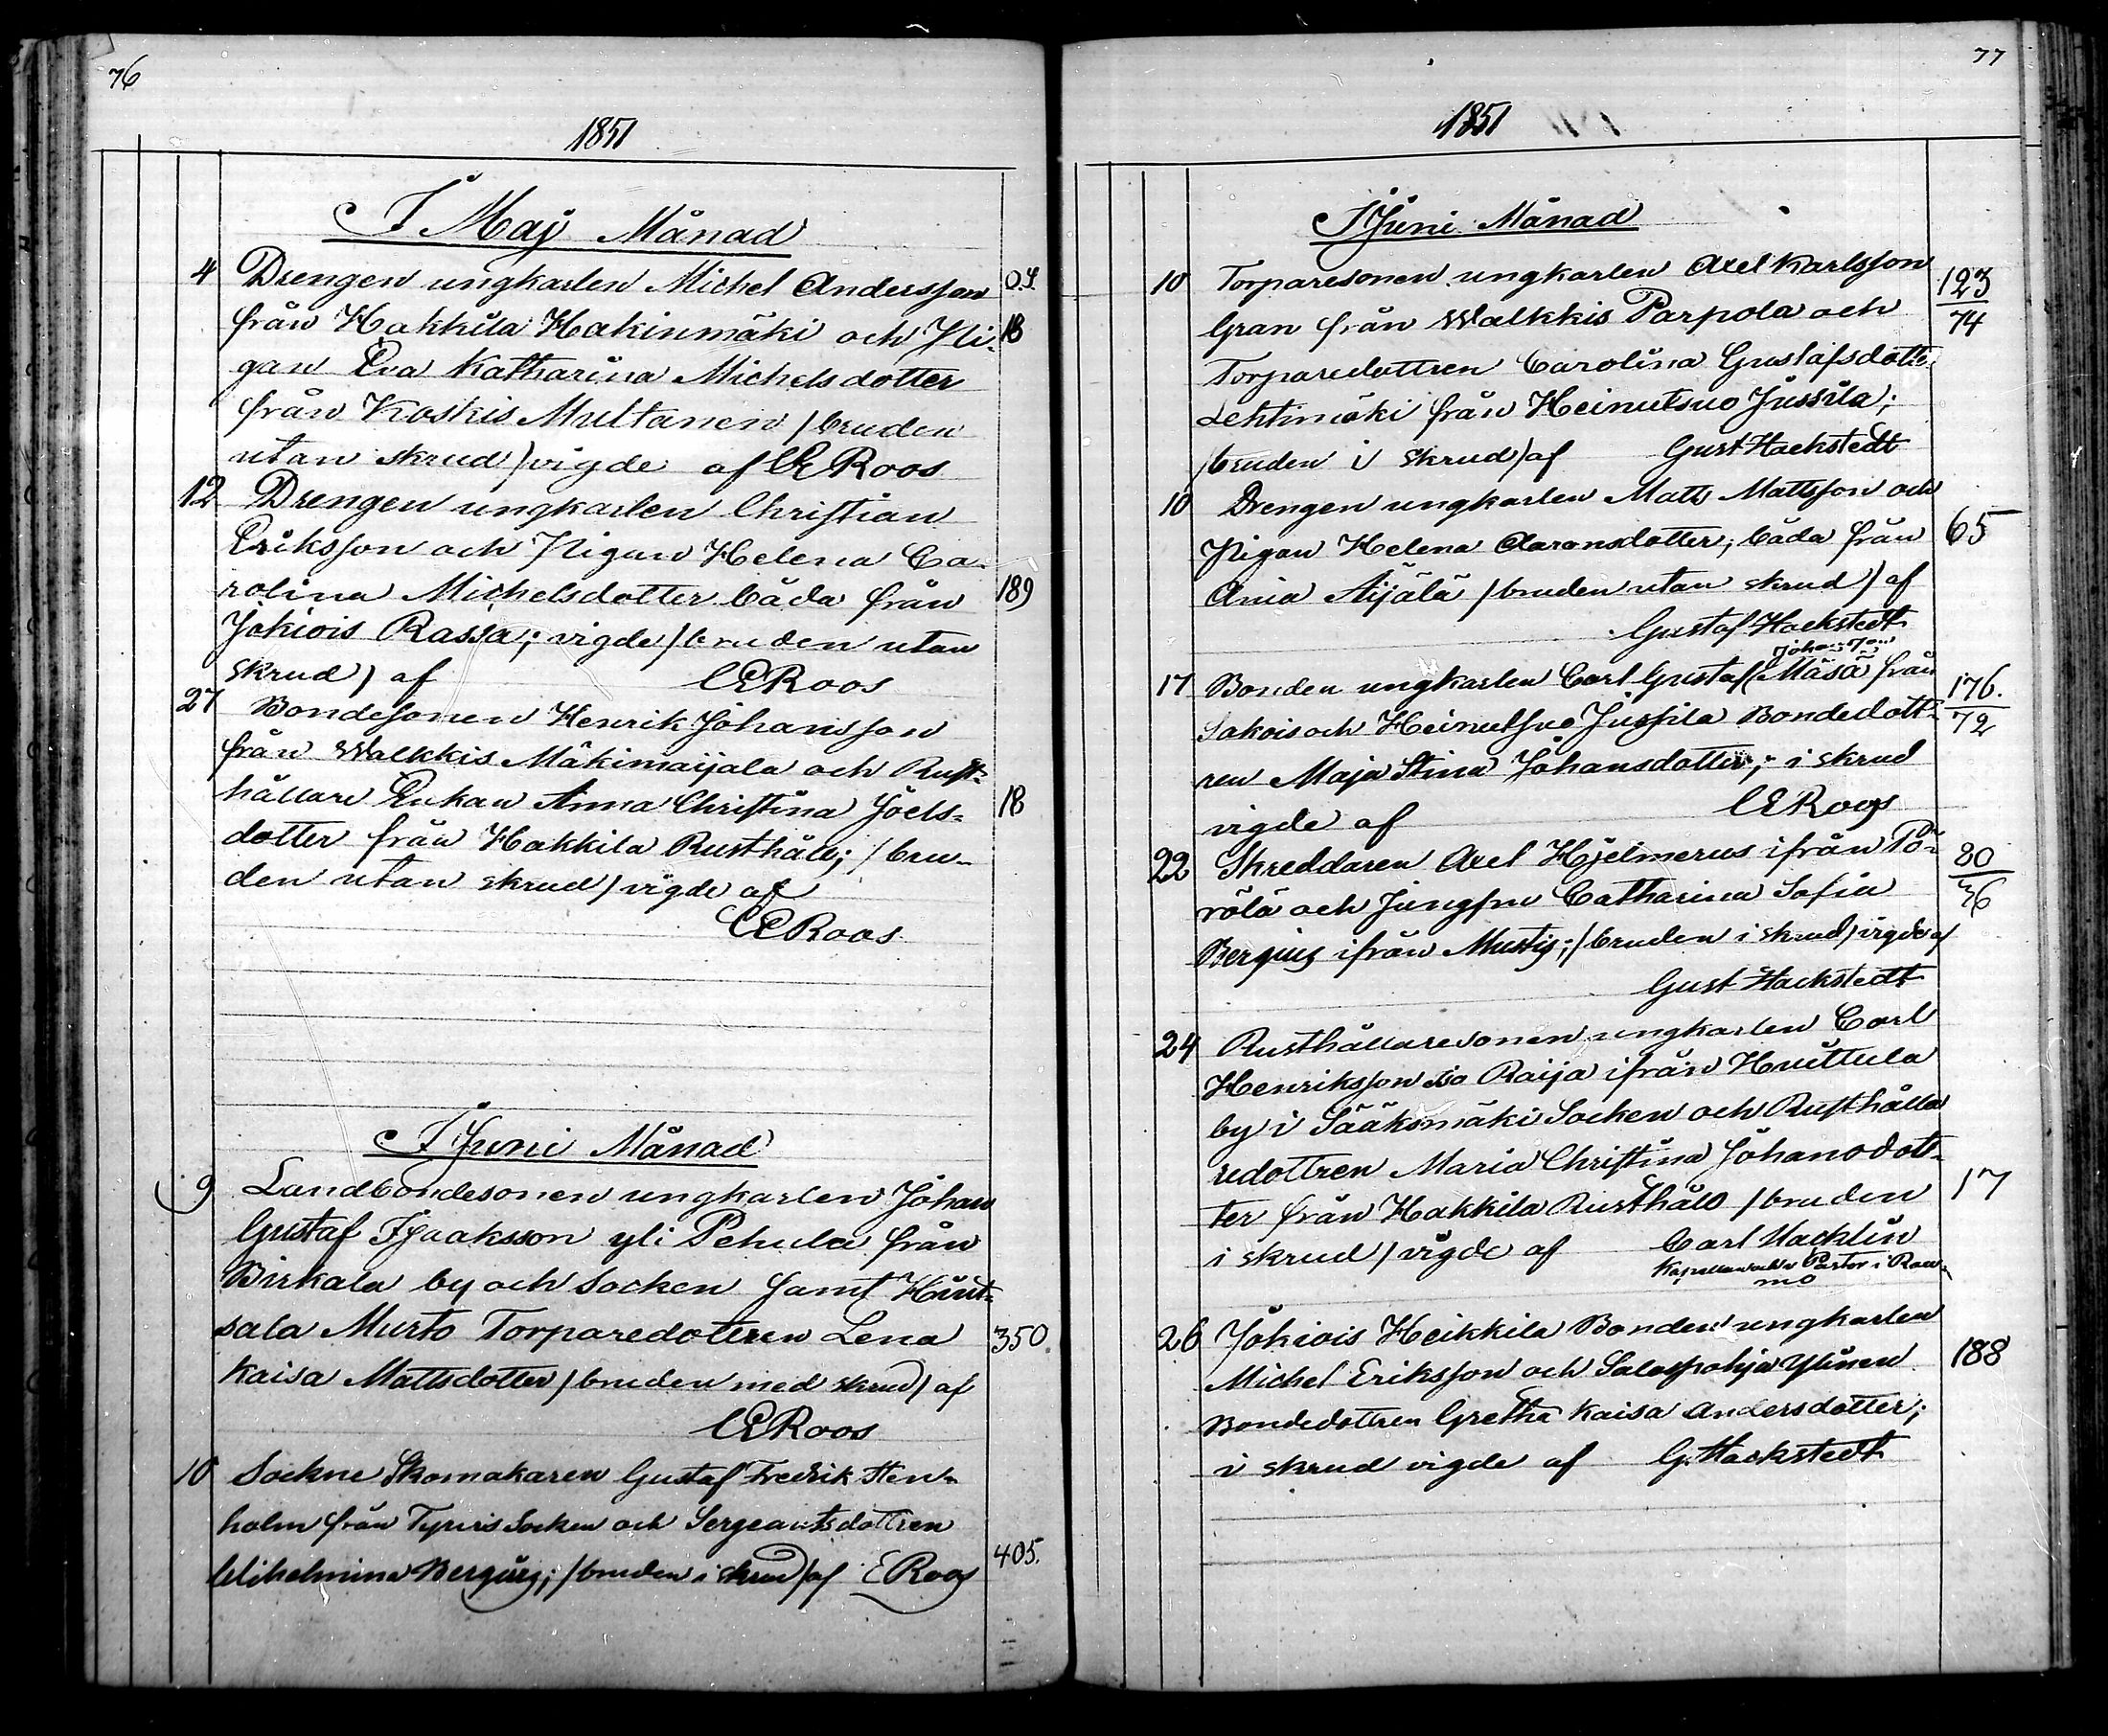 76
1851
I Maj Månad
4 Drengen ungkarlen Michel Andersson
från Hakkila Hakinmäki och Pi- 18
gan Eva Katharina Michelsdotter
från Koskis Multanen /bruden
utan skrud/ vigde af CE Roos
12 Drengen ungkarlen Christian
Eriksson och Pigan Helena Ca-
rolina Michelsdotter båda från 189
Jokiois Rassa; vigde /bruden utan
skrud/ af CE Roos
27 Bondesonen Henrik Johansson
från Walkkis Mäkimaijala och Rust-
hållare Enkan Anna Christina Joels- 18
dotter från Hakkila Rusthåll; /bru-
den utan skrud/ vigde af
CE Roos
I Juni Månad
9 Landbondesonen ungkarlen Johan
Gustaf Isaaksson yli Pehula från
Birkala by och Socken samt
sala Murto Torparedottren Lena 350.
Kaisa Mattsdotter /bruden med skrud/ af
CE Roos
10 Sockne Skomakaren Gustaf Fredrik Sten-
holm från Tyrvis Socken och Sergeantsdottren
Wilhelmina Bergius; /bruden i skrud/ af E Roos 405.
77
1851
I Juni Månad
10 Torparesonen ungkarlen Axel Karlsson 123
Gran från Walkkis Parpola och 74
Torparedottren Carolina Gustafsdotter
Lehtimäki från Heinutsuo Jussila;
/bruden i skrud/ af Gust Hackstedt
10 Drengen ungkarlen Matts Mattsson och
Pigan Helena Aaronsdotter; båda från 65
Ania Äijälä /bruden utan skrud/ af
Gustaf Hackstedt
Johansson
17 Bonden ungkarlen Carl Gustaf Mäsä från 176.
Sakois och Heinutsuo Jussila Bondedott- 72
ren Maja Stina Johansdotter; i skrud
vigde af CE Roos
22 Skreddaren Axel Hjelmerus ifrån Pö- 20
rölä och Jungfru Catharina Sofia 36
Bergius ifrån Mustis; /bruden i skrud/ vigde af
Gust Hackstedt
24 Rusthållaresonen ungkarlen Carl
Henriksson iso Raija ifrån Huittula
by i Sääksmäki Socken och Rusthålla
redottren Maria Christina Johansdott-
ter från Hakkila Rusthåll /bruden 17
i skrud/ vigde af Carl Hacklin
Pastor i Rau-
mo
26 Jokiois Heikkila Bonden ungkarlen
Michel Eriksson och Salospohja Ylinen 188
Bondedottren Gretha Kaisa Andersdotter;
i skrud vigde af G. Hackstedt